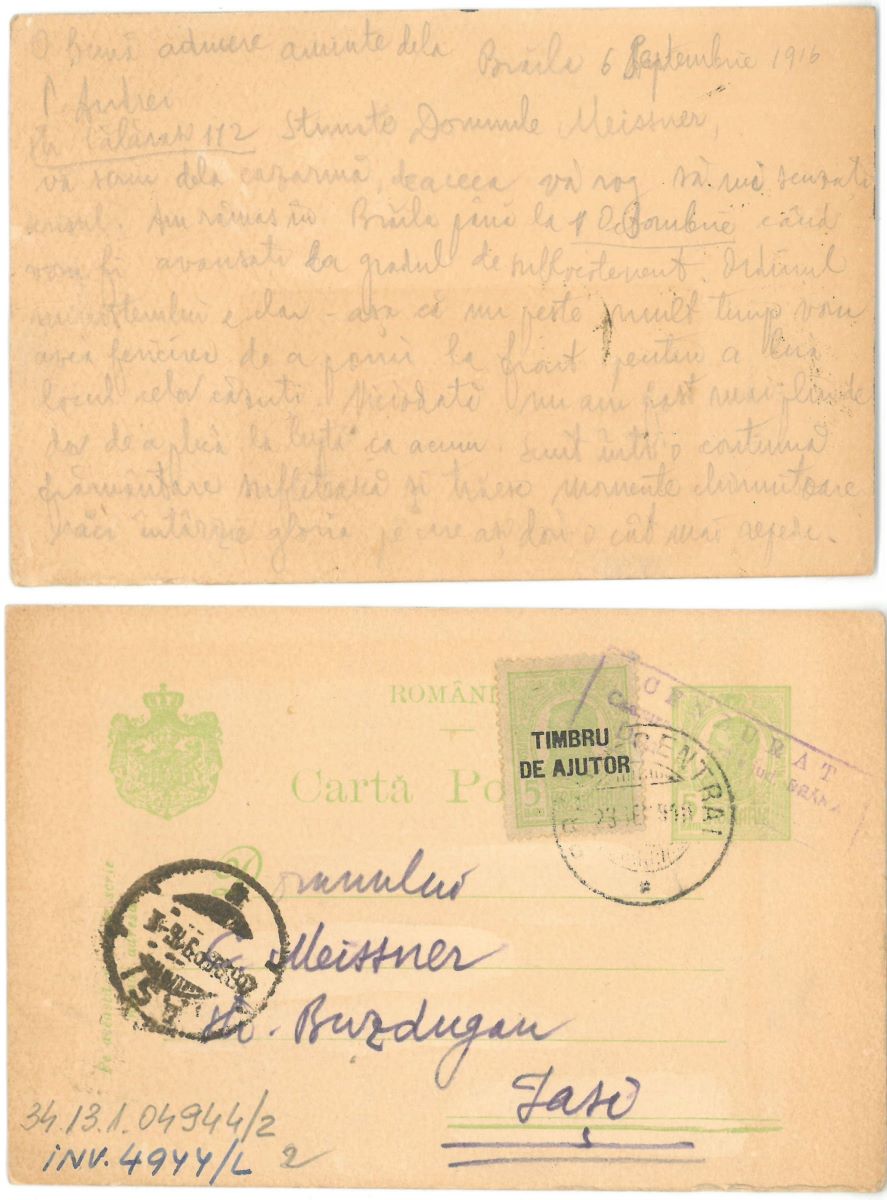 O bună aducere aminte dela
Brăila 6 Septembrie 1916
P. Andrei
Călărași 112 Stimate Domnule Meissner,
vă scriu dela cazarmă, deaceea vă rog să-mi scuzați
scrisul. Am rămas în Brăila până la 1 Octombrie când
vom fi avansați la gradul de sublocotenent. Ordinul
ministerului e clar - așa că nu peste mult timp vom
avea fericirea de a porni la front pentru a lua
locul celor căzuți. Niciodată nu am fost mai plin de
dor de a pleca la luptă ca acum. Sunt într'o continuă
frământare sufletească și trăesc momente chinuitoare
căci întârzie gloria pe care aș dori-o cât mai repede.
ROMÂNI
Cartă Po
TIMBRU
DE AJUTOR
5
CENZURAT
CENTRAL
5
Domnului
Meissner
Str. Buzdugan
Iași
IAȘI
34.13.1.04944/2
INV. 4944/L 2